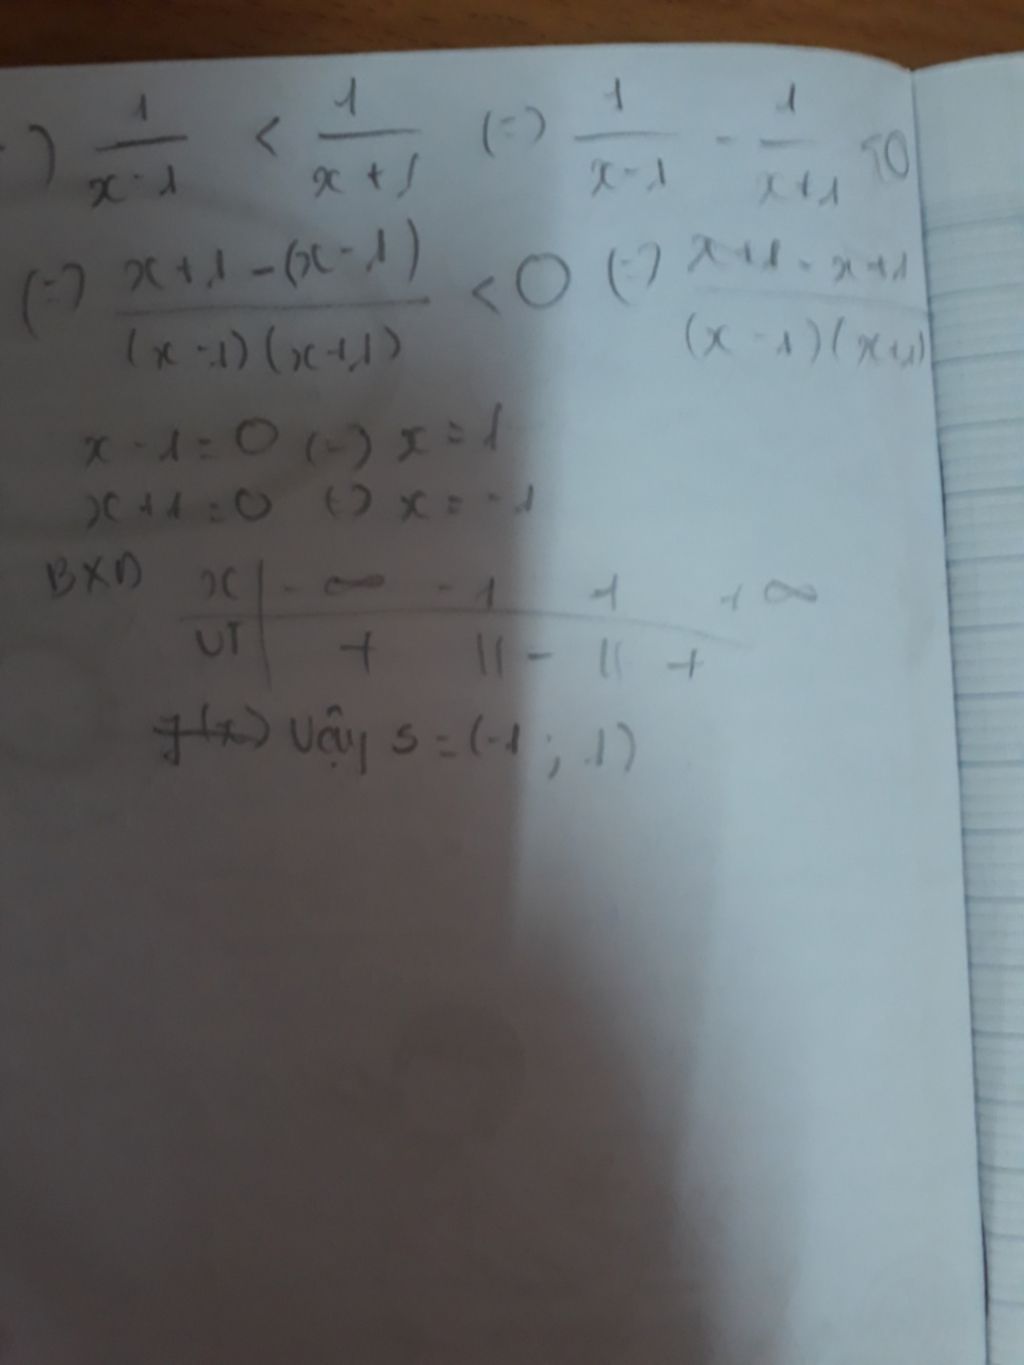 ) 1/(x-1) < 1/(x+1) (=) 1/(x-1) - 1/(x+1) <0
(=) (x+1-(x-1))/((x-1)(x+1)) <0 (=) (x+1-x+1)/((x-1)(x+1))
x-1=0 (=) x=1
x+1=0 (=) x=-1
BXD x | -∞ -1 1 +∞
VT | + || - || +
f(x) Vậy S=(-1; 1)